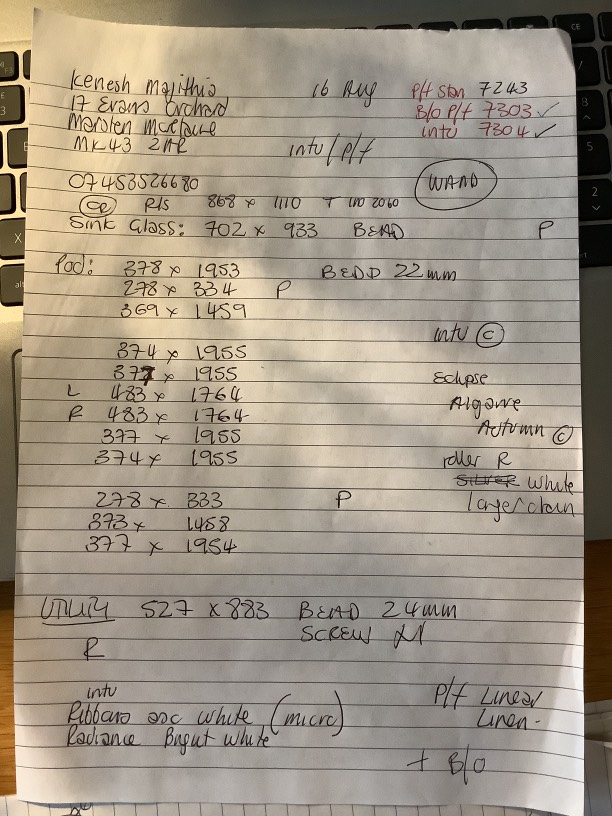 Kenesh Majithia 16 Aug P/f Stan 7243
17 Evans Orchard B/o P/f 7303 ✓
Marsten intu 7304 ✓
MK43 intu/P/f
07453526680 WAND
P/s 868 x 1110 2060
Sink Glass: 702 x 933 BEAD P
Pod: 378 x 1953 BEDD 22mm
278 x 334 P
369 x 1459
intu ©
374 x 1955
377 x 1955 Eclipse
L 483 x 1764 Algarve
R 483 x 1764 Autumn ©
377 x 1955
374 x 1955 roller R
SILVER white
278 x 333 P large/chain
373 x 1458
377 x 1954
UTILITY 527 x 883 BEAD 24mm
SCREW
R
intu P/f Linear
white (micro) Linen-
Radiance Bright white
+ B/O